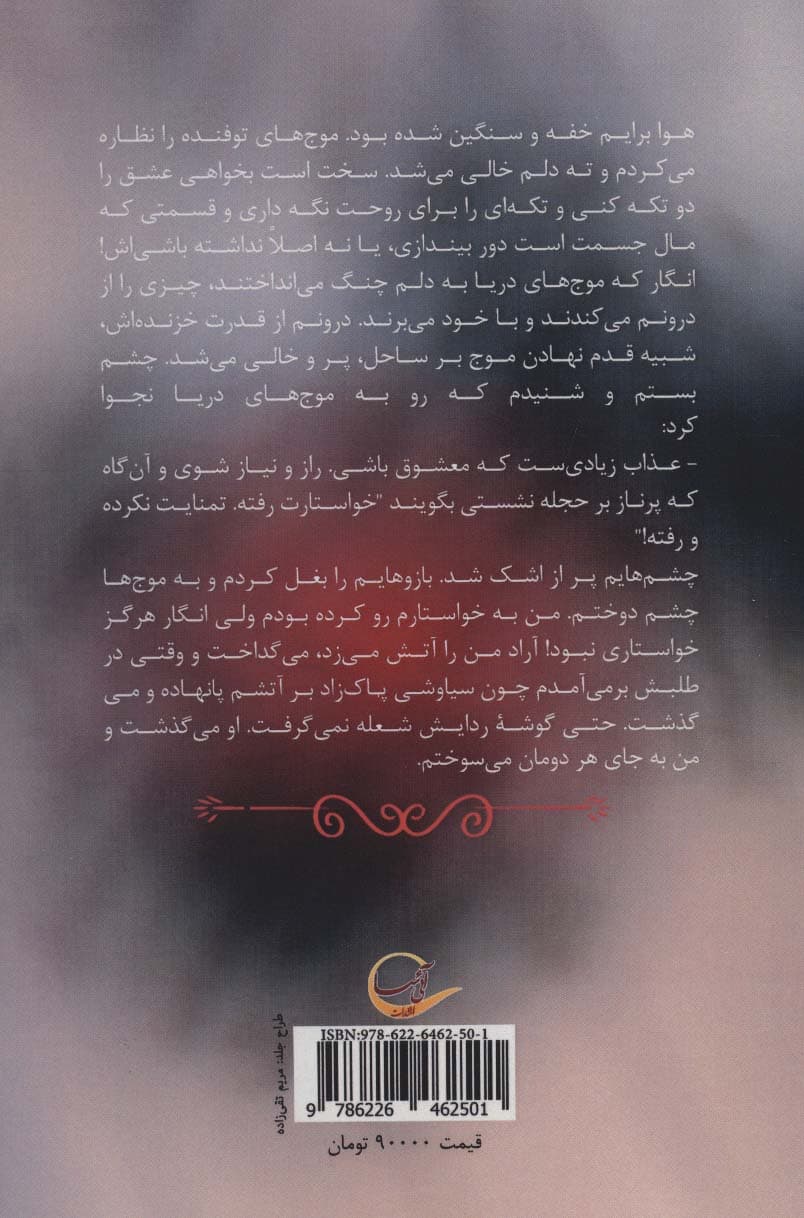 هوا برایم خفه و سنگین شده بود. موج‌های توفنده را نظاره
می‌کردم و ته دلم خالی می‌شد. سخت است بخواهی عشق را
دو تکه کنی و تکه‌ای را برای روحت نگه داری و قسمتی که
مال جسمت است دور بیندازی، یا نه اصلاً نداشته باشی‌اش!
انگار که موج‌های دریا به دلم چنگ می‌انداختند، چیزی را از
درونم می‌کندند و با خود می‌برند. درونم از قدرت خزنده‌اش،
شبیه قدم نهادن موج بر ساحل، پر و خالی می‌شد. چشم
بستم و شنیدم که رو به موج‌های دریا نجوا
کرد:
- عذاب زیادی‌ست که معشوق باشی. راز و نیاز شوی و آن‌گاه
که پرناز بر حجله نشستی بگویند "خواستارت رفته. تمنایت نکرده
و رفته!"
چشم‌هایم پر از اشک شد. بازوهایم را بغل کردم و به موج‌ها
چشم دوختم. من به خواستارم رو کرده بودم ولی انگار هرگز
خواستاری نبود! آراد من را آتش می‌زد، می‌گداخت و وقتی در
طلبش برمی‌آمدم چون سیاوشی پاک‌زاد بر آتشم پانهاده و می
گذشت. حتی گوشهٔ ردایش شعله نمی‌گرفت. او می‌گذشت و
من به جای هر دومان می‌سوختم.
ISBN:978-622-6462-50-1
9 786226 462501
طراح جلد: مریم تقی‌زاده
قیمت ۹۰۰۰۰ تومان